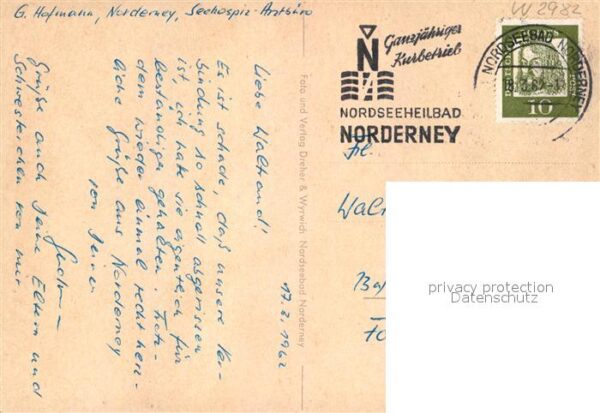 G. Hofmann, Norderney, Seehospiz-Arztbüro
W 2982
Ganzjähriger
Kurbetrieb
N
NORDSEEHEILBAD
NORDERNEY
NORDSEEBAD NORDERNEY
10
Frl.
Foto und Verlag Dreher & Wyrwich Nordseebad Norderney
17.2.1962
Liebe Waltraud!
Es ist schade, daß unsere Ver-
bindung so schnell abgerissen
ist, ich hatte sie eigentlich für
beständiger gehalten. Trotz-
dem wieder einmal recht herz-
liche Grüße aus Norderney
von Deiner
Grüße auch Deine Eltern und
Schwesterchen von mir.
privacy protection
Datenschutz